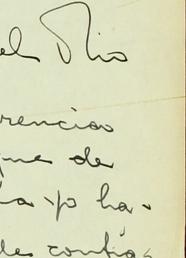 del Rio
rencias
que de
la yo ha-
de confia-